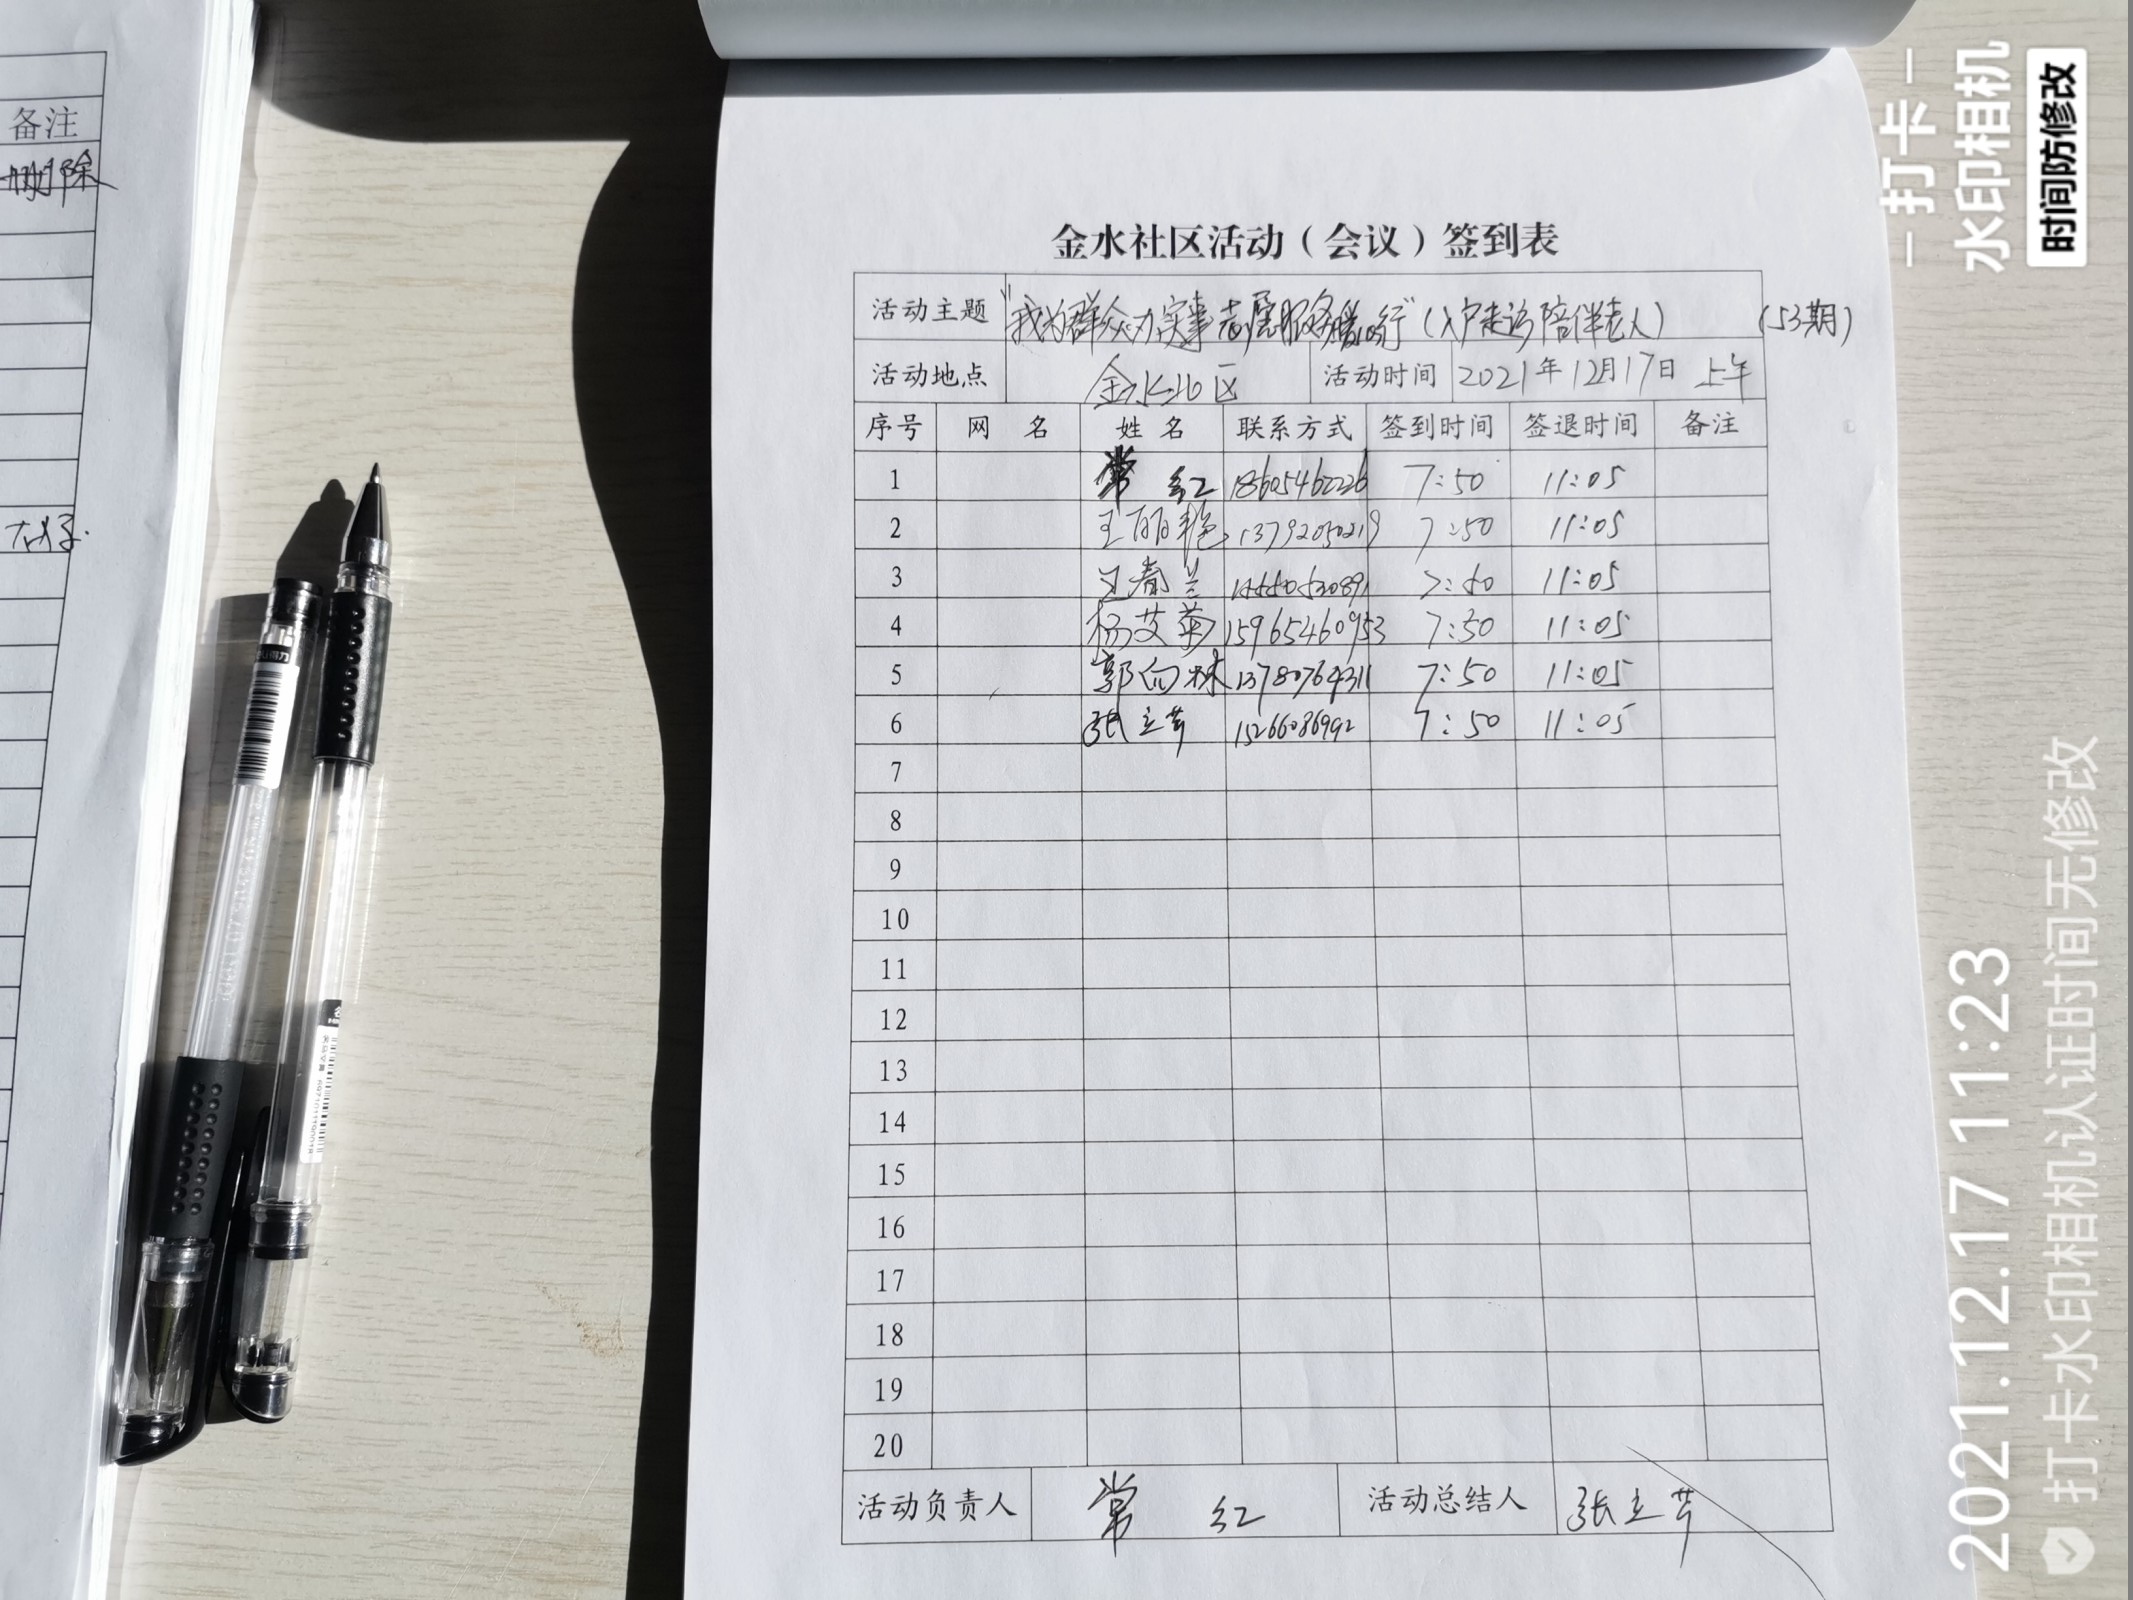 备注
删除
金水社区活动（会议）签到表
活动主题 "我为群众办实事志愿服务暖心行"（入户走访陪伴老人） （53期）
活动地点 金水社区 活动时间 2021年12月17日 上午
序号 网 名 姓 名 联系方式 签到时间 签退时间 备注
1 常 红 18605462226 7:50 11:05
2 王丽艳 13792050219 7:50 11:05
3 王春兰 7:50 11:05
4 杨艾菊 15965460953 7:50 11:05
5 郭向林 13780764311 7:50 11:05
6 张立芹 15266086992 7:50 11:05
7
8
9
10
11
12
13
14
15
16
17
18
19
20
活动负责人 常 红 活动总结人 张立芹
打卡
水印相机
时间防修改
2021.12.17 11:23
打卡水印相机认证时间无修改